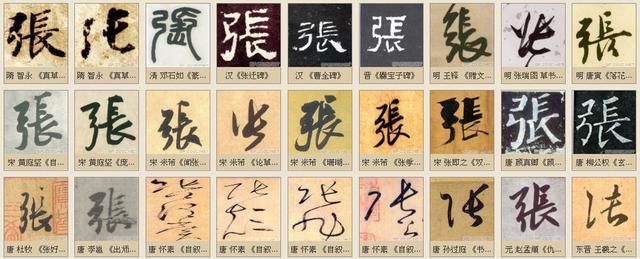 張 張 張 張 張 張 張 張 張
隋 智永《真草... 隋 智永《真草... 清 邓石如《篆... 汉《张迁碑》 汉《曹全碑》 晋《爨宝子碑》 明 王铎《赠文... 明 张瑞图 草书... 明 唐寅《落花...
張 張 張 張 張 張 張 張 張
宋 黄庭坚《自... 宋 黄庭坚《庞... 宋 米芾《闻张... 宋 米芾《论草... 宋 米芾《珊瑚... 宋 米芾《张季... 宋 张即之《双... 唐 颜真卿《颜... 唐 柳公权《玄...
張 張 張 張 張
唐 杜牧《张好... 唐 李邕《出师... 唐 怀素《自叙... 唐 怀素《自叙... 唐 怀素《自叙... 唐 怀素《自叙... 唐 孙过庭《书... 元 赵孟頫《仇... 东晋 王羲之《...